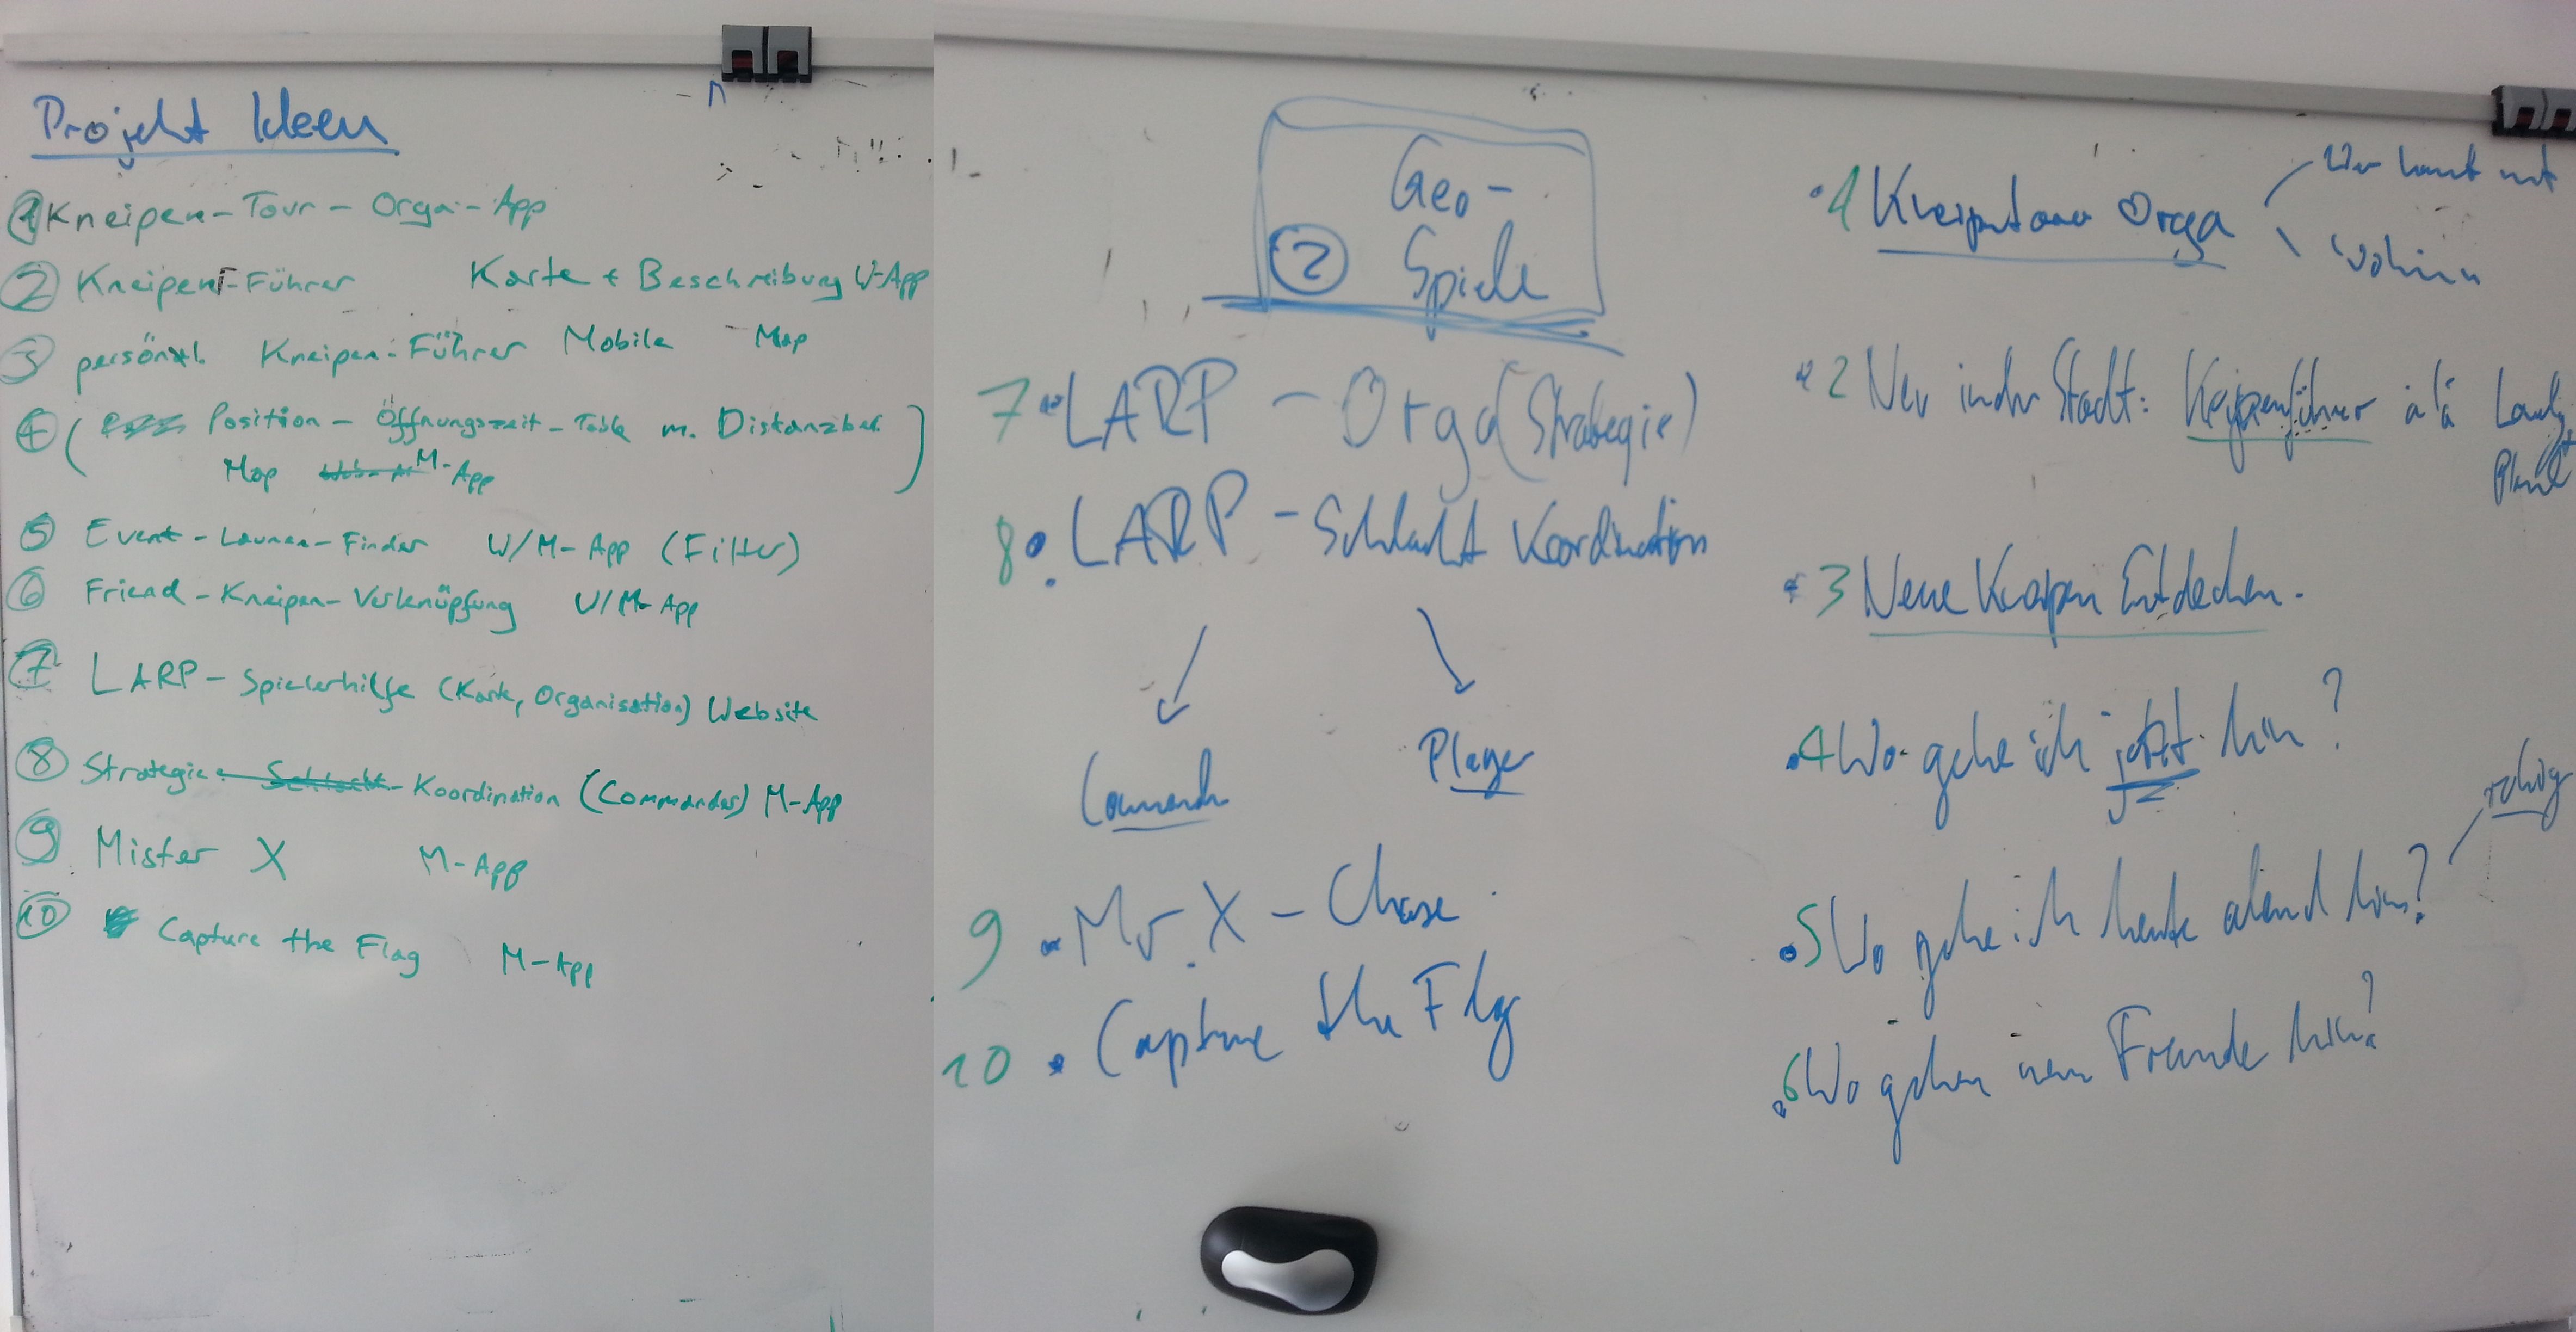 Projekt Ideen
1 Kneipen-Tour-Orga-App
2 Kneipen-Führer Karte + Beschreibung W-App
3 persönl. Kneipen-Führer Mobile Map
4 ( Position - Öffnungszeit - Table m. Distanzber.
Map M-App )
5 Event-Launen-Finder W/M-App (Filter)
6 Friend-Kneipen-Verknüpfung W/M-App
7 LARP-Spielerhilfe (Karte, Organisation) Website
8 Strategie-Schlacht-Koordination (Commander) M-App
9 Mister X M-App
10 Capture the Flag M-App
Geo-
2 Spiele
7 LARP - Orga (Strategie)
8 LARP - Schlacht Koordination
Command
Player
9 Mr. X - Chase
10 Capture the Flag
1 Kneipentour Orga
Wer kommt mit
Wohin
2 Neu in der Stadt: Kneipenführer á lá Lonely
Planet
3 Neue Kneipen Entdecken.
4 Wo gehe ich jetzt hin?
5 Wo gehe ich heute abend hin?
6 Wo gehen mein Freunde hin?